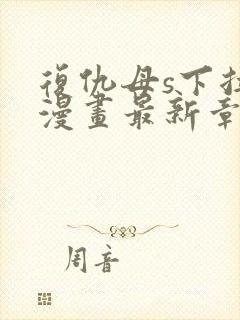 復仇母s下拉
漫畫最新章
周音